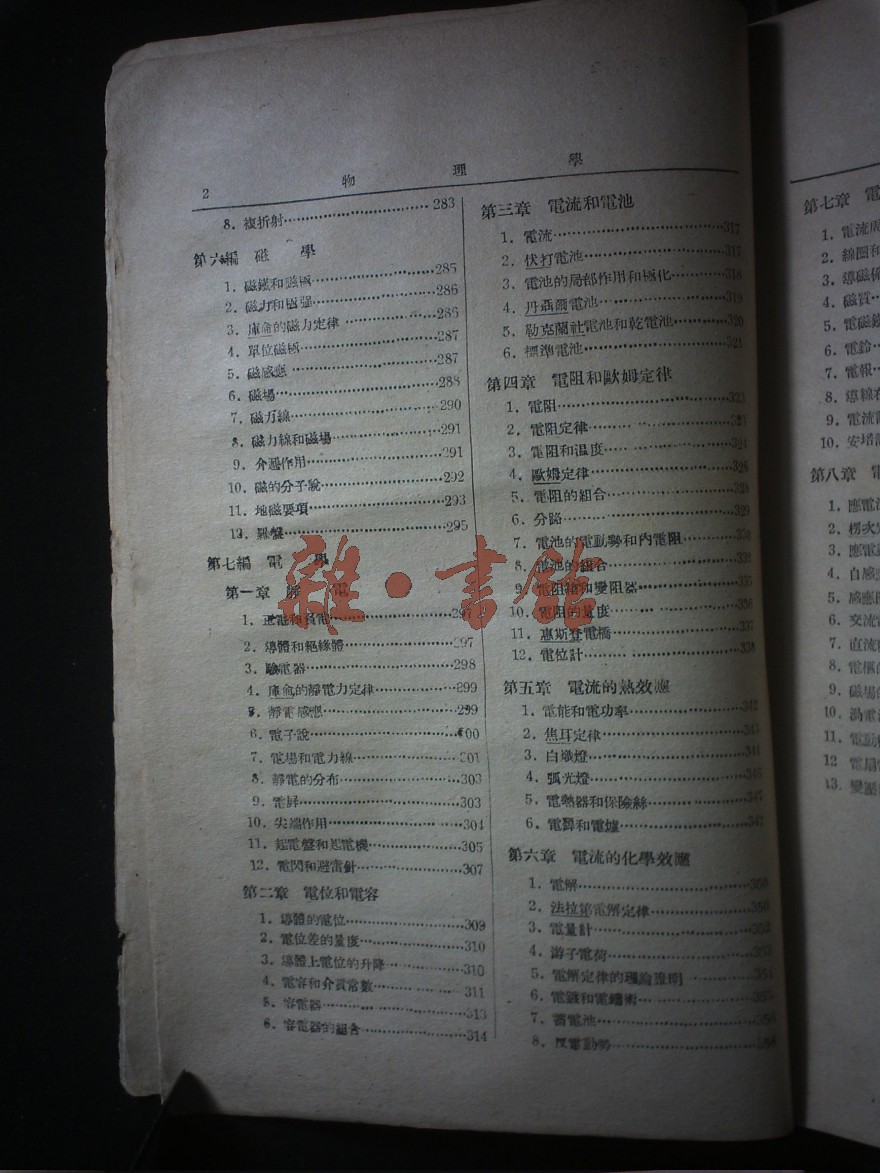 2 物 理 學
8. 複折射 283
第六編 磁 學
1. 磁鐵和磁極 285
2. 磁力和磁强 286
3. 庫侖的磁力定律 286
4. 單位磁極 287
5. 磁感應 287
6. 磁場 288
7. 磁力線 290
8. 磁力線和磁場 291
9. 介過作用 291
10. 磁的分子說 292
11. 地磁要項 293
12. 羅盤 295
第七編 電 學
第一章 靜 電
1. 正電和負電 297
2. 導體和絕緣體 297
3. 驗電器 298
4. 庫侖的靜電力定律 299
5. 靜電感應 299
6. 電子說 300
7. 電場和電力線 301
8. 靜電的分布 303
9. 電屏 303
10. 尖端作用 304
11. 起電盤和起電機 305
12. 電閃和避雷針 307
第二章 電位和電容
1. 導體的電位 309
2. 電位差的量度 310
3. 導體上電位的升降 310
4. 電容和介質常數 311
5. 容電器 313
6. 容電器的組合 314
第三章 電流和電池
1. 電流 317
2. 伏打電池 317
3. 電池的局部作用和極化 318
4. 丹聶爾電池 319
5. 勒克蘭社電池和乾電池 320
6. 標準電池 321
第四章 電阻和歐姆定律
1. 電阻 323
2. 電阻定律 323
3. 電阻和温度 324
4. 歐姆定律 326
5. 電阻的組合 328
6. 分路 329
7. 電池的電動勢和內電阻
8. 電池的組合
9. 電阻箱和變阻器 335
10. 電阻的量度 336
11. 惠斯登電橋 337
12. 電位計 338
第五章 電流的熱效應
1. 電能和電功率 342
2. 焦耳定律 343
3. 白熾燈 344
4. 弧光燈
5. 電熱器和保險絲
6. 電爨和電爐 347
第六章 電流的化學效應
1. 電解 350
2. 法拉第電解定律 350
3. 電量計 352
4. 游子電荷
5. 電解定律的理論證明 354
6. 電鍍和電鑄術
7. 蓄電池
8. 反電動勢
第七章 電
1. 電流
2. 線圈和
3. 導磁係
4. 磁質
5. 電磁鐵
6. 電鈴
7. 電報
8. 導線在
9. 電流
10. 安培
第八章 電
1. 應電流
2. 楞次定
3. 應電
4. 自感應
5. 感應
6. 交流
7. 直流
8. 電樞
9. 磁場的
10. 渦電
11. 電動
12 電扇
13. 變壓
雜·書館